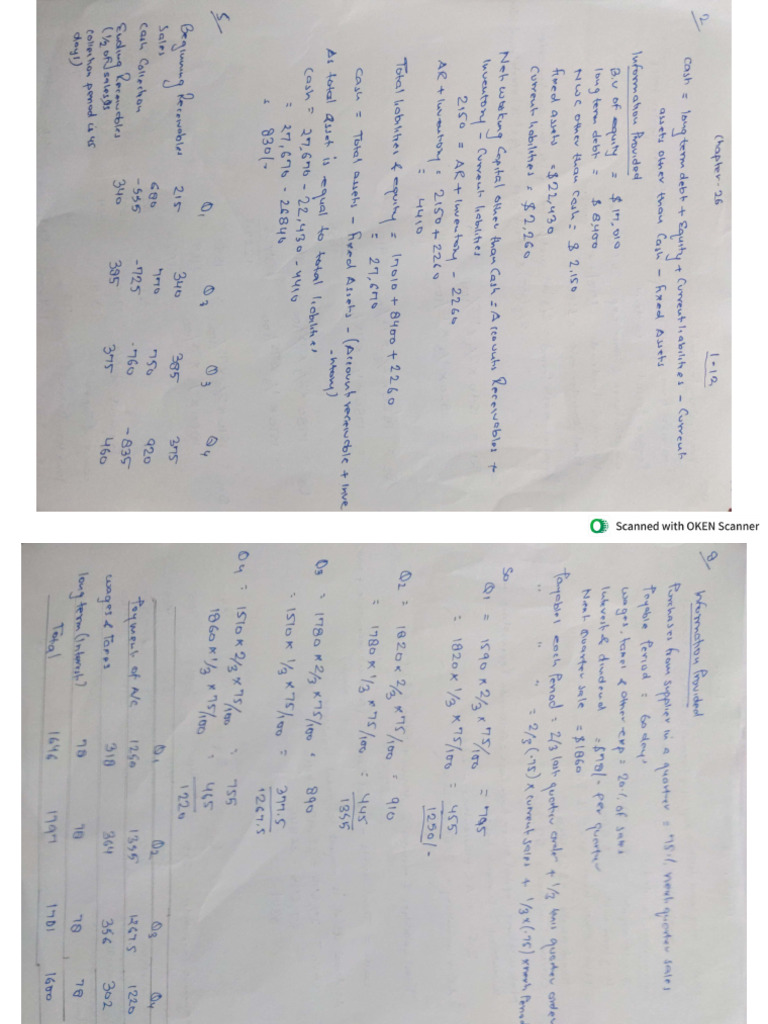 Chapter-26
1-12
2.
Cash = long term debt + Equity + Current liabilities - Current
assets other than Cash - fixed Assets
Information Provided
B.V of equity = $ 17,010
long term debt = $ 8400
NWC other than Cash = $ 2,150
fixed assets = $ 22,430
Current liabilities = $ 2,260
Net working Capital other than Cash = Accounts Receivables +
Inventory - Current liabilities
2150 = AR + Inventory - 2260
AR + Inventory = 2150 + 2260
= 4410
Total liabilities & equity = 17010 + 8400 + 2260
= 27,670
Cash = Total assets - fixed Assets - (Account receivable + Inve
-ntory)
As total asset is equal to total liabilities
Cash = 27,670 - 22,430 - 4410
= 27,670 - 26840
= 830/-
5
Q1 Q2 Q3 Q4
Beginning Receivables 215 340 385 375
Sales 680 770 750 920
Cash Collection -555 -725 -760 -835
Ending Receivables 340 385 375 460
(1/2 of sales as
collection period is 45
days)
Scanned with OKEN Scanner
8
Information Provided
Purchases from supplier in a quarter = 75% next quarter sales
Payable Period = 60 days
wages, taxes & other exp = 20% of sales
Interest & dividend = $78/- per quarter
Next quarter sale = $1860
Payables each Period = 2/3 last quarter order + 1/3 this quarter order
" " " = 2/3(.75) x current sales + 1/3 x(.75) x next Period
So
Q1 = 1590 x 2/3 x 75/100 = 795
= 1820 x 1/3 x 75/100 = 455
1250/-
Q2 = 1820 x 2/3 x 75/100 = 910
= 1780 x 1/3 x 75/100 = 445
1355
Q3 = 1780 x 2/3 x 75/100 = 890
= 1510 x 1/3 x 75/100 = 377.5
1267.5
Q4 = 1510 x 2/3 x 75/100 = 755
1860 x 1/3 x 75/100 = 465
1220
Q1 Q2 Q3 Q4
Payment of A/C 1250 1355 1267.5 1220
wages & Taxes 318 364 356 302
long term (Interest) 78 78 78 78
Total 1646 1797 1701 1600